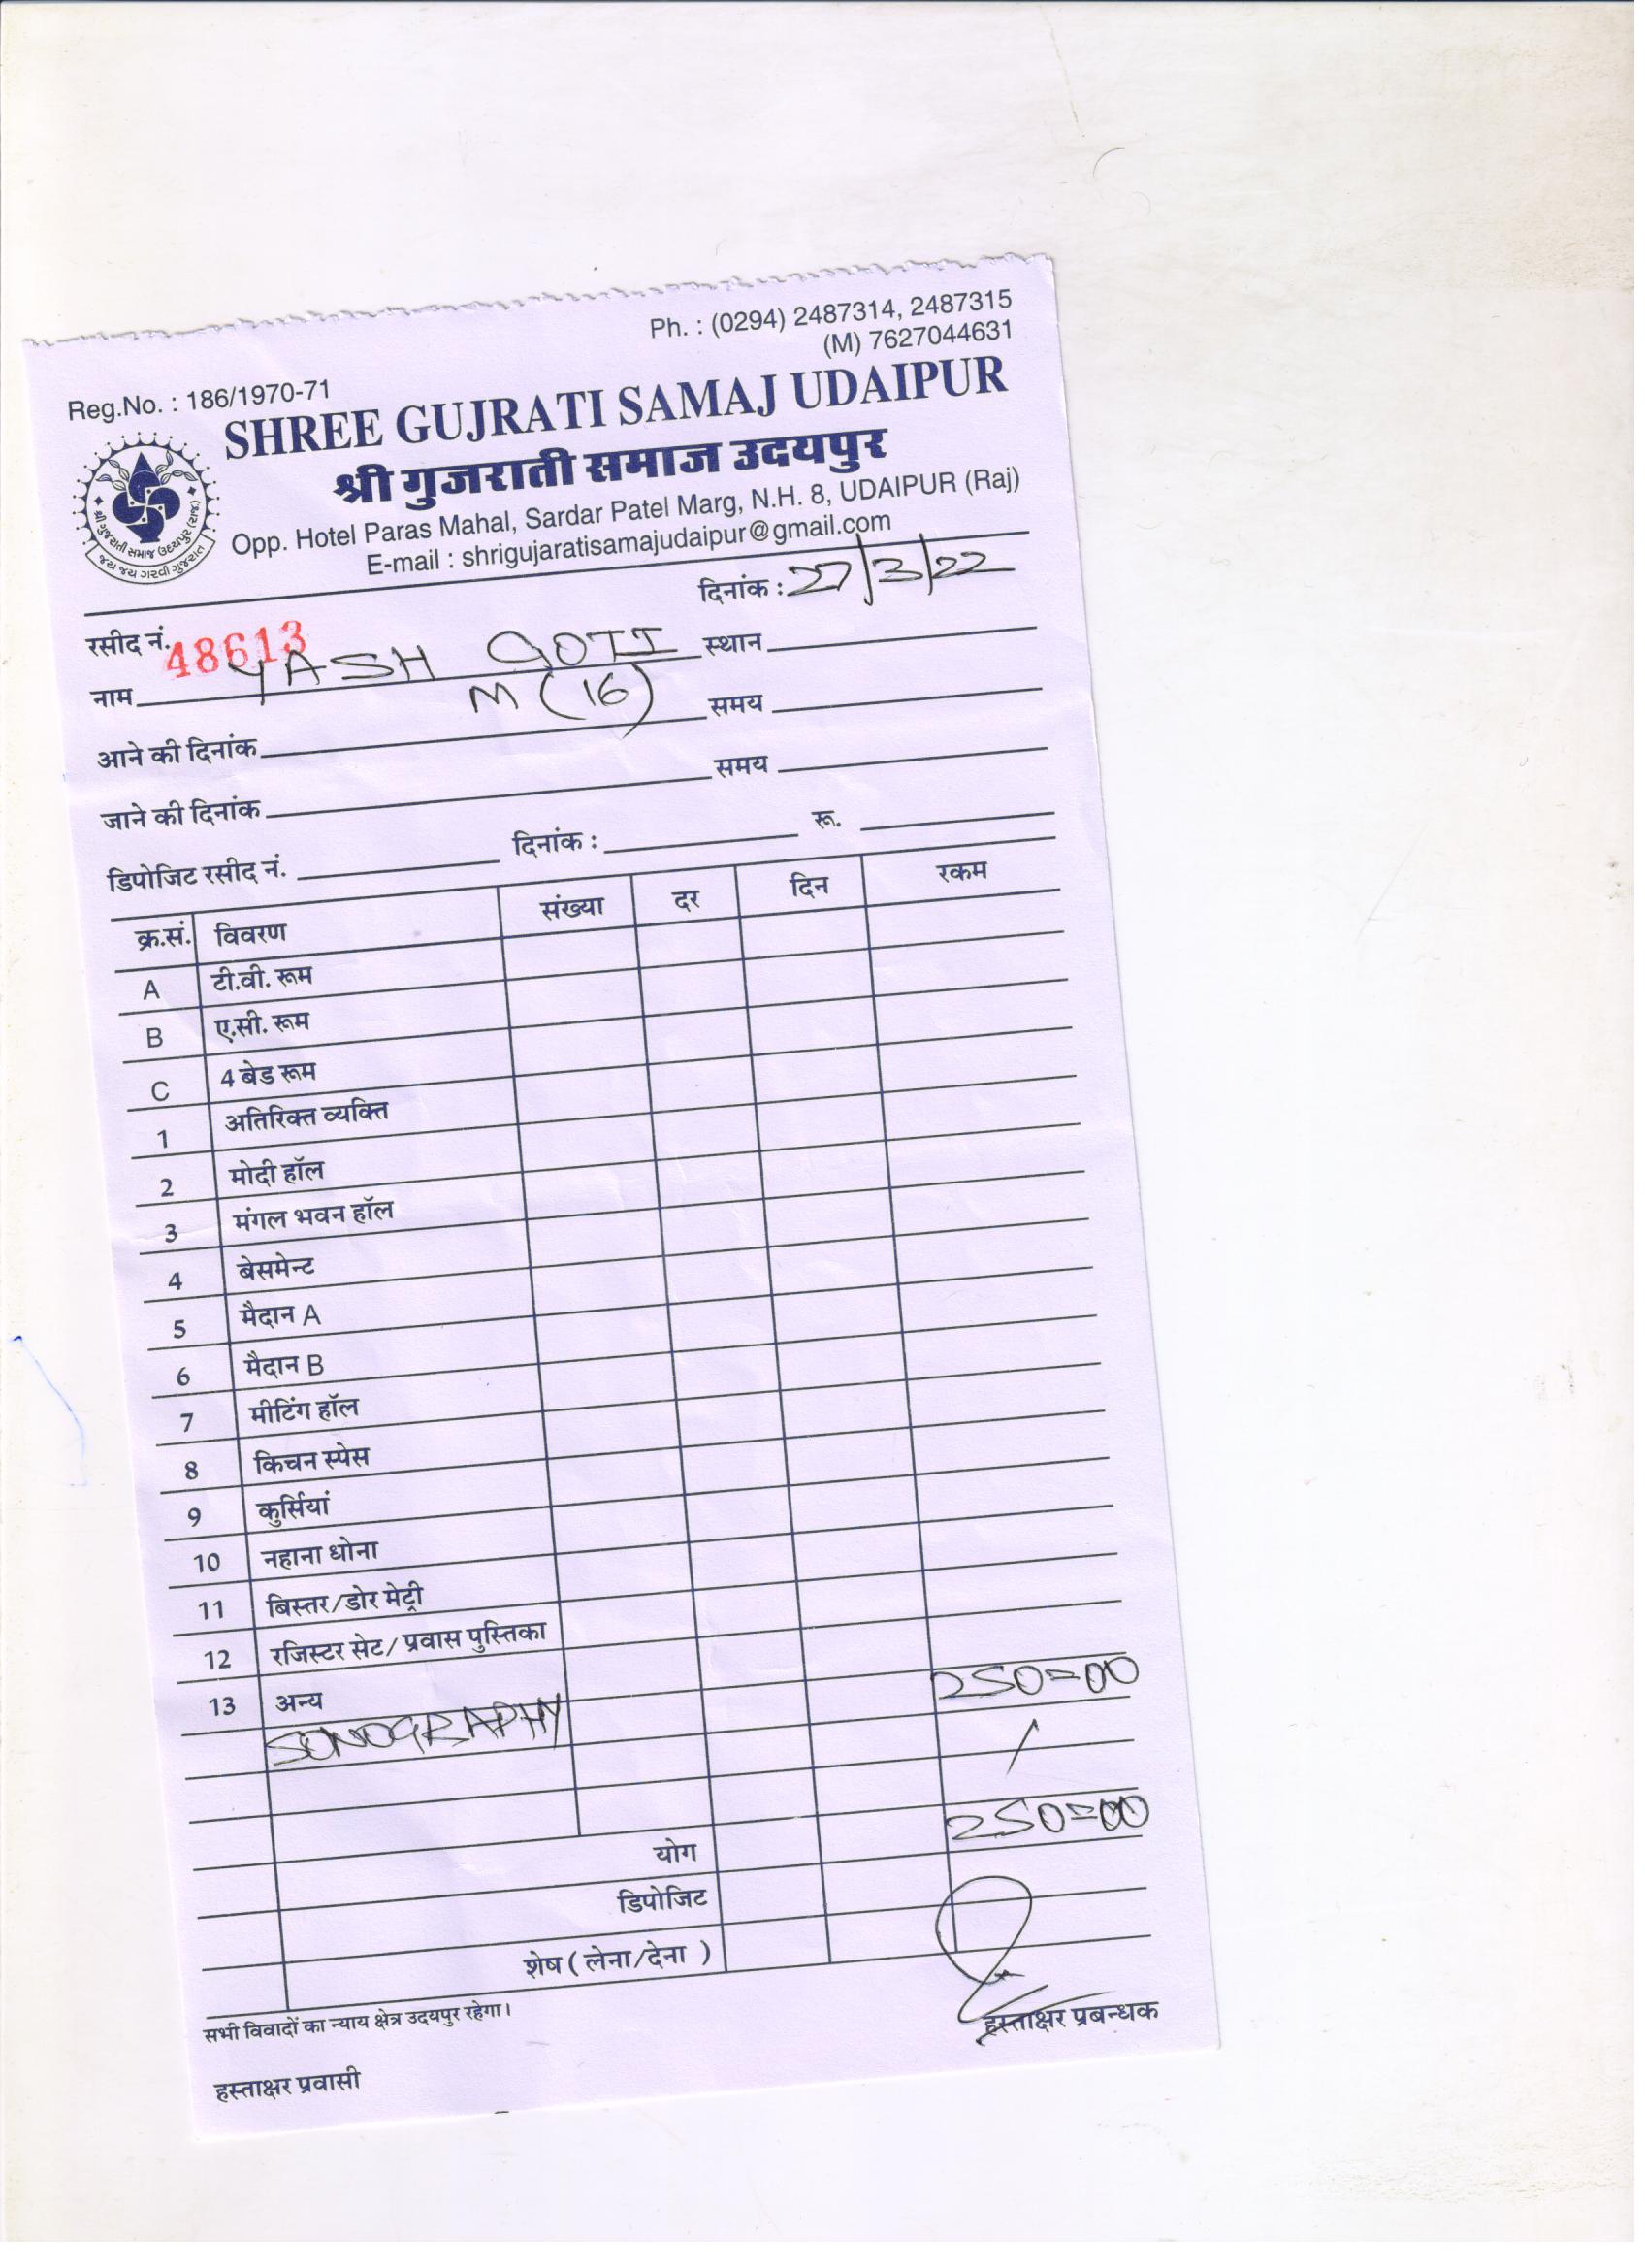 Ph. : (0294) 2487314, 2487315
(M) 7627044631
Reg.No. : 186/1970-71
SHREE GUJRATI SAMAJ UDAIPUR
श्री गुजराती समाज उदयपुर
Opp. Hotel Paras Mahal, Sardar Patel Marg, N.H. 8, UDAIPUR (Raj)
E-mail : shrigujaratisamajudaipur@gmail.com
શ્રી ગુજરાતી સમાજ ઉદયપુર (રાજ)
જય જય ગરવી ગુજરાત
दिनांक : 27/3/22
रसीद नं. 48613
नाम YASH GOTI स्थान
M (16)
आने की दिनांक समय
जाने की दिनांक समय
डिपोजिट रसीद नं. दिनांक : रू.
क्र.सं. विवरण संख्या दर दिन रकम
A टी.वी. रूम
B ए.सी. रूम
C 4 बेड रूम
1 अतिरिक्त व्यक्ति
2 मोदी हॉल
3 मंगल भवन हॉल
4 बेसमेन्ट
5 मैदान A
6 मैदान B
7 मीटिंग हॉल
8 किचन स्पेस
9 कुर्सियां
10 नहाना धोना
11 बिस्तर/डोर मेट्री
12 रजिस्टर सेट/ प्रवास पुस्तिका
13 अन्य 250=00
SONOGRAPHY /
योग 250=00
डिपोजिट
शेष ( लेना/देना )
सभी विवादों का न्याय क्षेत्र उदयपुर रहेगा।
हस्ताक्षर प्रबन्धक
हस्ताक्षर प्रवासी